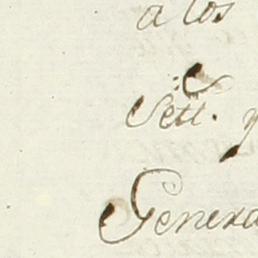 a los
Sett.
Genera